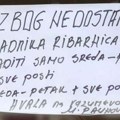 ZBOG NEDOSTAT
ADNIKA RIBARNICA
ODITI SAMO SREDA-P
SVE POSTI
EDA-PETAK + SVE POS
HVALA NA razumevan